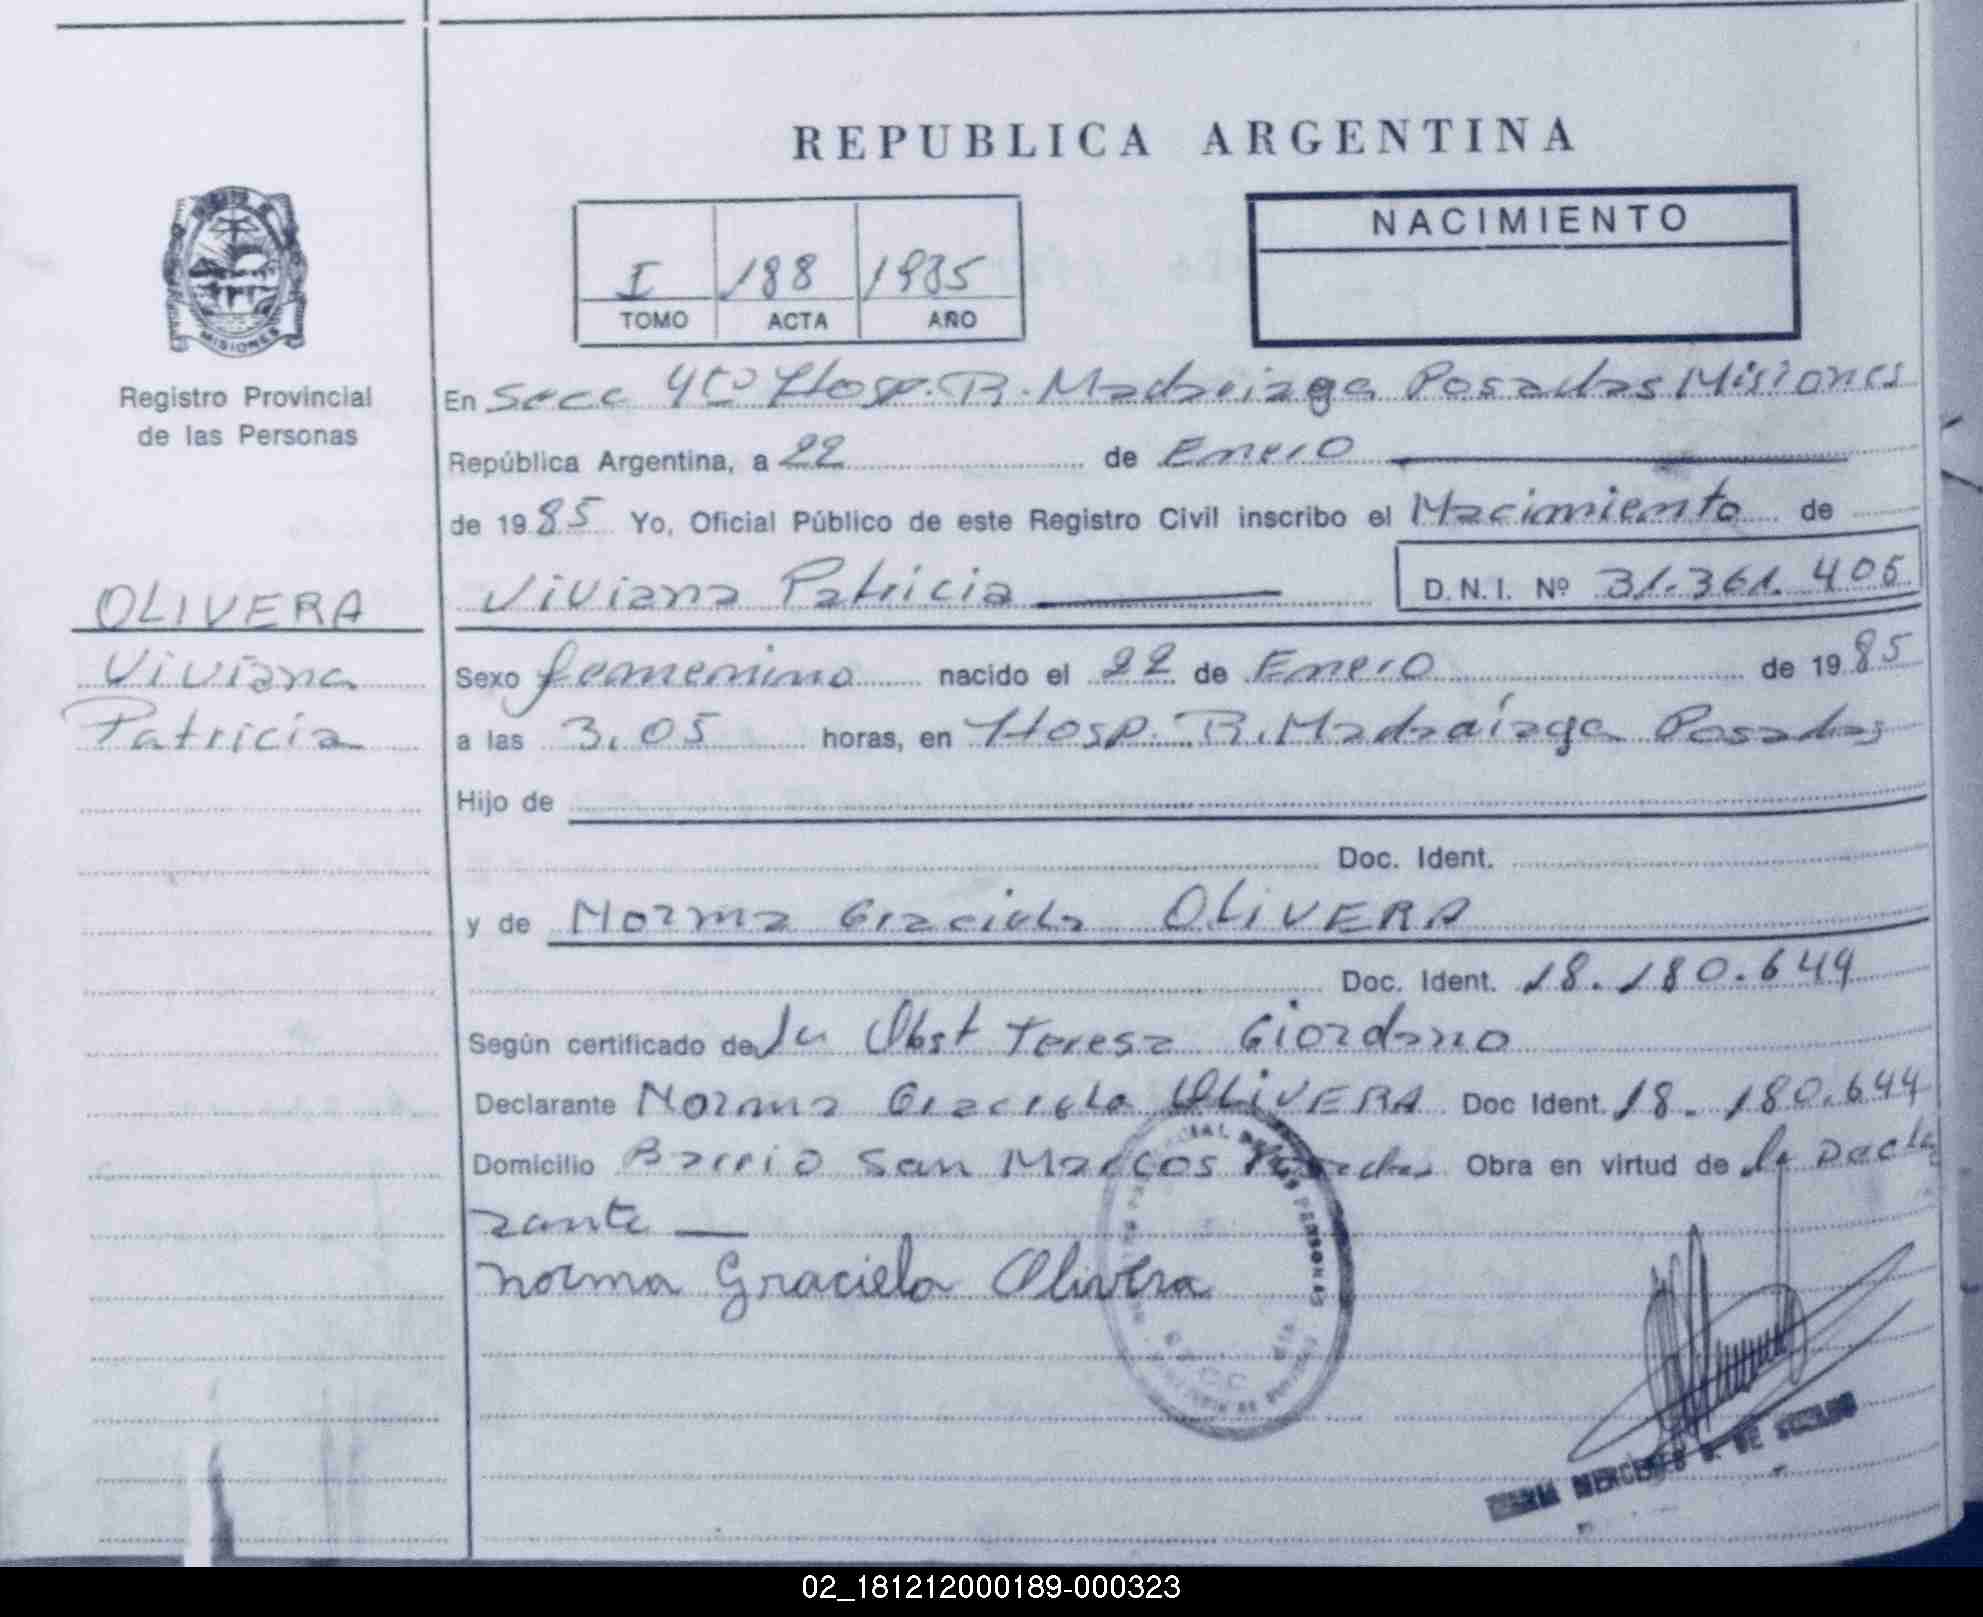 REPUBLICA ARGENTINA
NACIMIENTO
I 188 1985
TOMO ACTA AÑO
MISIONES
Registro Provincial
de las Personas
En Secc 4ta Hosp. R. Madariaga Posadas Misiones
República Argentina, a 22 de Enero
de 1985 Yo, Oficial Público de este Registro Civil inscribo el Nacimiento de
OLIVERA
Viviana Patricia D.N.I. Nº 31.361.405
Viviana
Sexo femenino nacido el 22 de Enero de 1985
Patricia
a las 3,05 horas, en Hosp. R. Madraiaga Posadas
Hijo de
Doc. Ident.
y de Norma Graciela OLIVERA
Doc. Ident. 18.180.644
Según certificado de la Obst Teresa Giordano
Declarante Norma Graciela OLIVERA Doc Ident. 18.180.644
Domicilio Barrio San Marcos Posadas Obra en virtud de la Decla
rante
Norma Graciela Olivera
DE LAS PERSONAS
MERCEDES
02_181212000189-000323